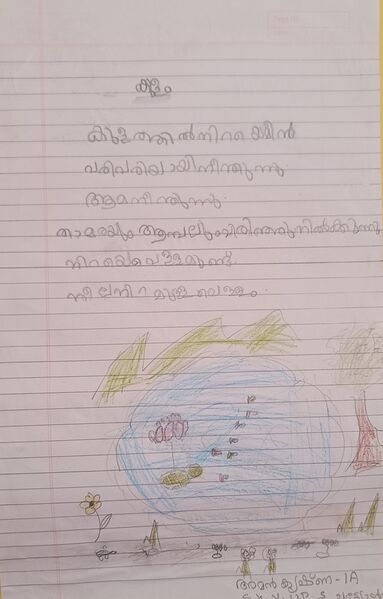 കുളം
കുളത്തിൽ നിറയെ മീൻ
വരിവരിയായി നീന്തുന്നു.
ആമ നീന്തുന്നു.
താമരയും ആമ്പലും വിരിഞ്ഞു നിൽക്കുന്നു
നിറയെ വെള്ളമുണ്ട്.
നീല നിറമുള്ള വെള്ളം.
അമൻ കൃഷ്ണ - 1A